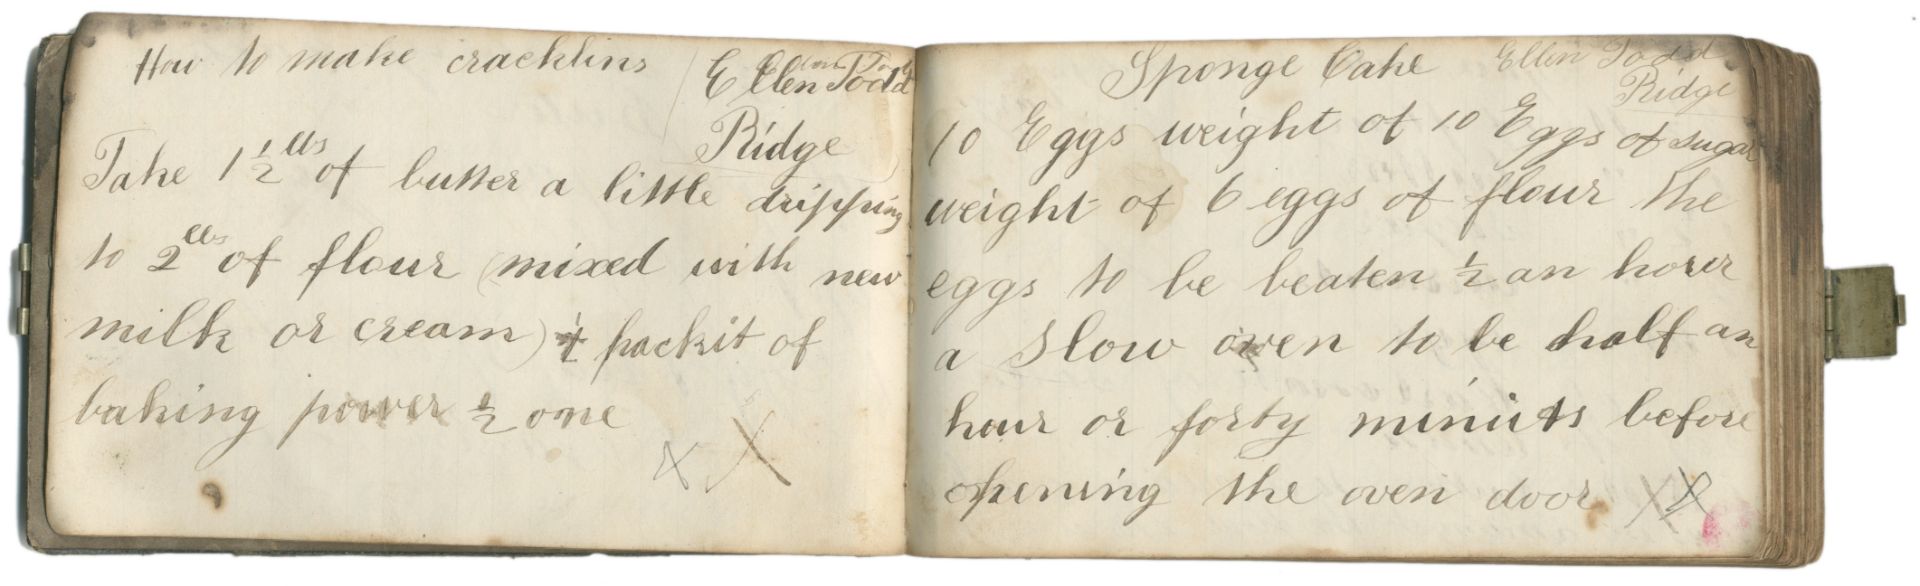 How to make cracklins
Ellen Todd
Ridge
Take 1 ½ lbs of butter a little dripping
to 2 lbs of flour (mixed with new
milk or cream) packit of
baking power ½ one
X X
Sponge Cake Ellen Todd
Ridge
10 Eggs weight of 10 Eggs of sugar
weight of 6 eggs of flour the
eggs to be beaten ½ an hour
a slow oven to be half an
hour or forty minuts before
opening the oven door XX